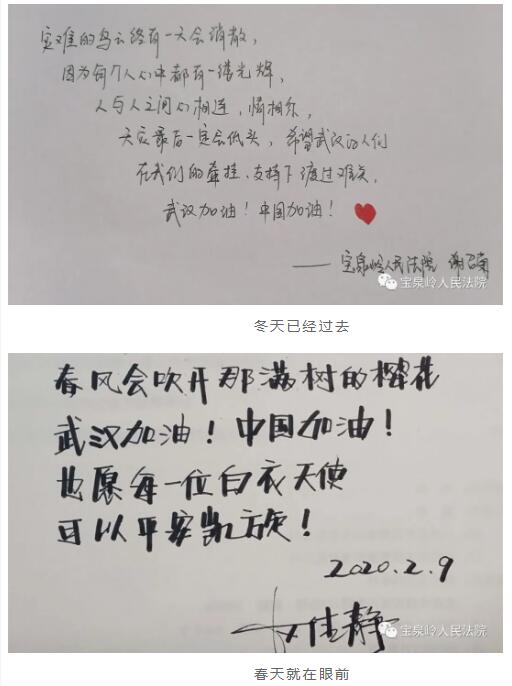 灾难的乌云终有一天会消散，
因为每个人心中都有一缕光辉，
人与人之间心相连，情相系，
天灾最后一定会低头，希望武汉的人们
在我们的牵挂、支持下渡过难关。
武汉加油！中国加油！
——宝泉岭人民法院
宝泉岭人民法院
冬天已经过去
春风会吹开那满树的樱花
武汉加油！中国加油！
也愿每一位白衣天使
可以平安凯旋！
2020.2.9
佳静
宝泉岭人民法院
春天就在眼前